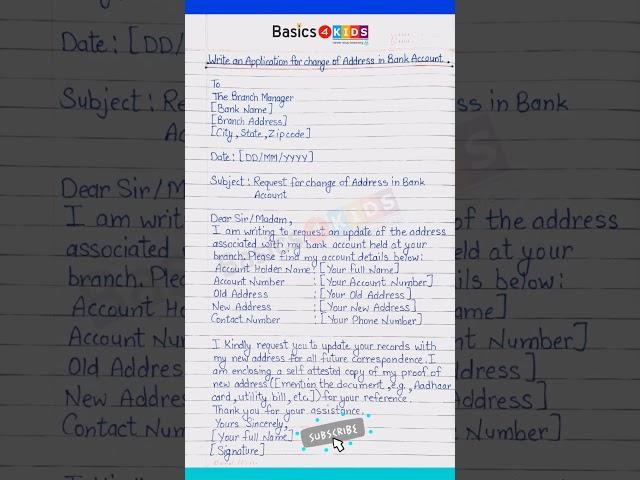 Basics4KIDS
Write an Application for change of Address in Bank Account.
To
The Branch Manager
[Bank Name]
[Branch Address]
[City, State, Zipcode]
Date: [DD/MM/YYYY]
Subject: Request for change of Address in Bank
Account
Dear Sir/Madam,
I am writing to request an update of the address
associated with my bank account held at your
branch. Please find my account details below:
Account Holder Name: [Your Full Name]
Account Number : [Your Account Number]
Old Address : [Your Old Address]
New Address : [Your New Address]
Contact Number : [Your Phone Number]
I Kindly request you to update your records with
my new address for all future correspondence. I
am enclosing a self attested copy of my proof of
new address ([mention the document, e.g., Aadhaar
card, utility bill, etc.]) for your reference.
Thank you for your assistance.
Yours Sincerely,
[Your Full Name]
[Signature]
SUBSCRIBE